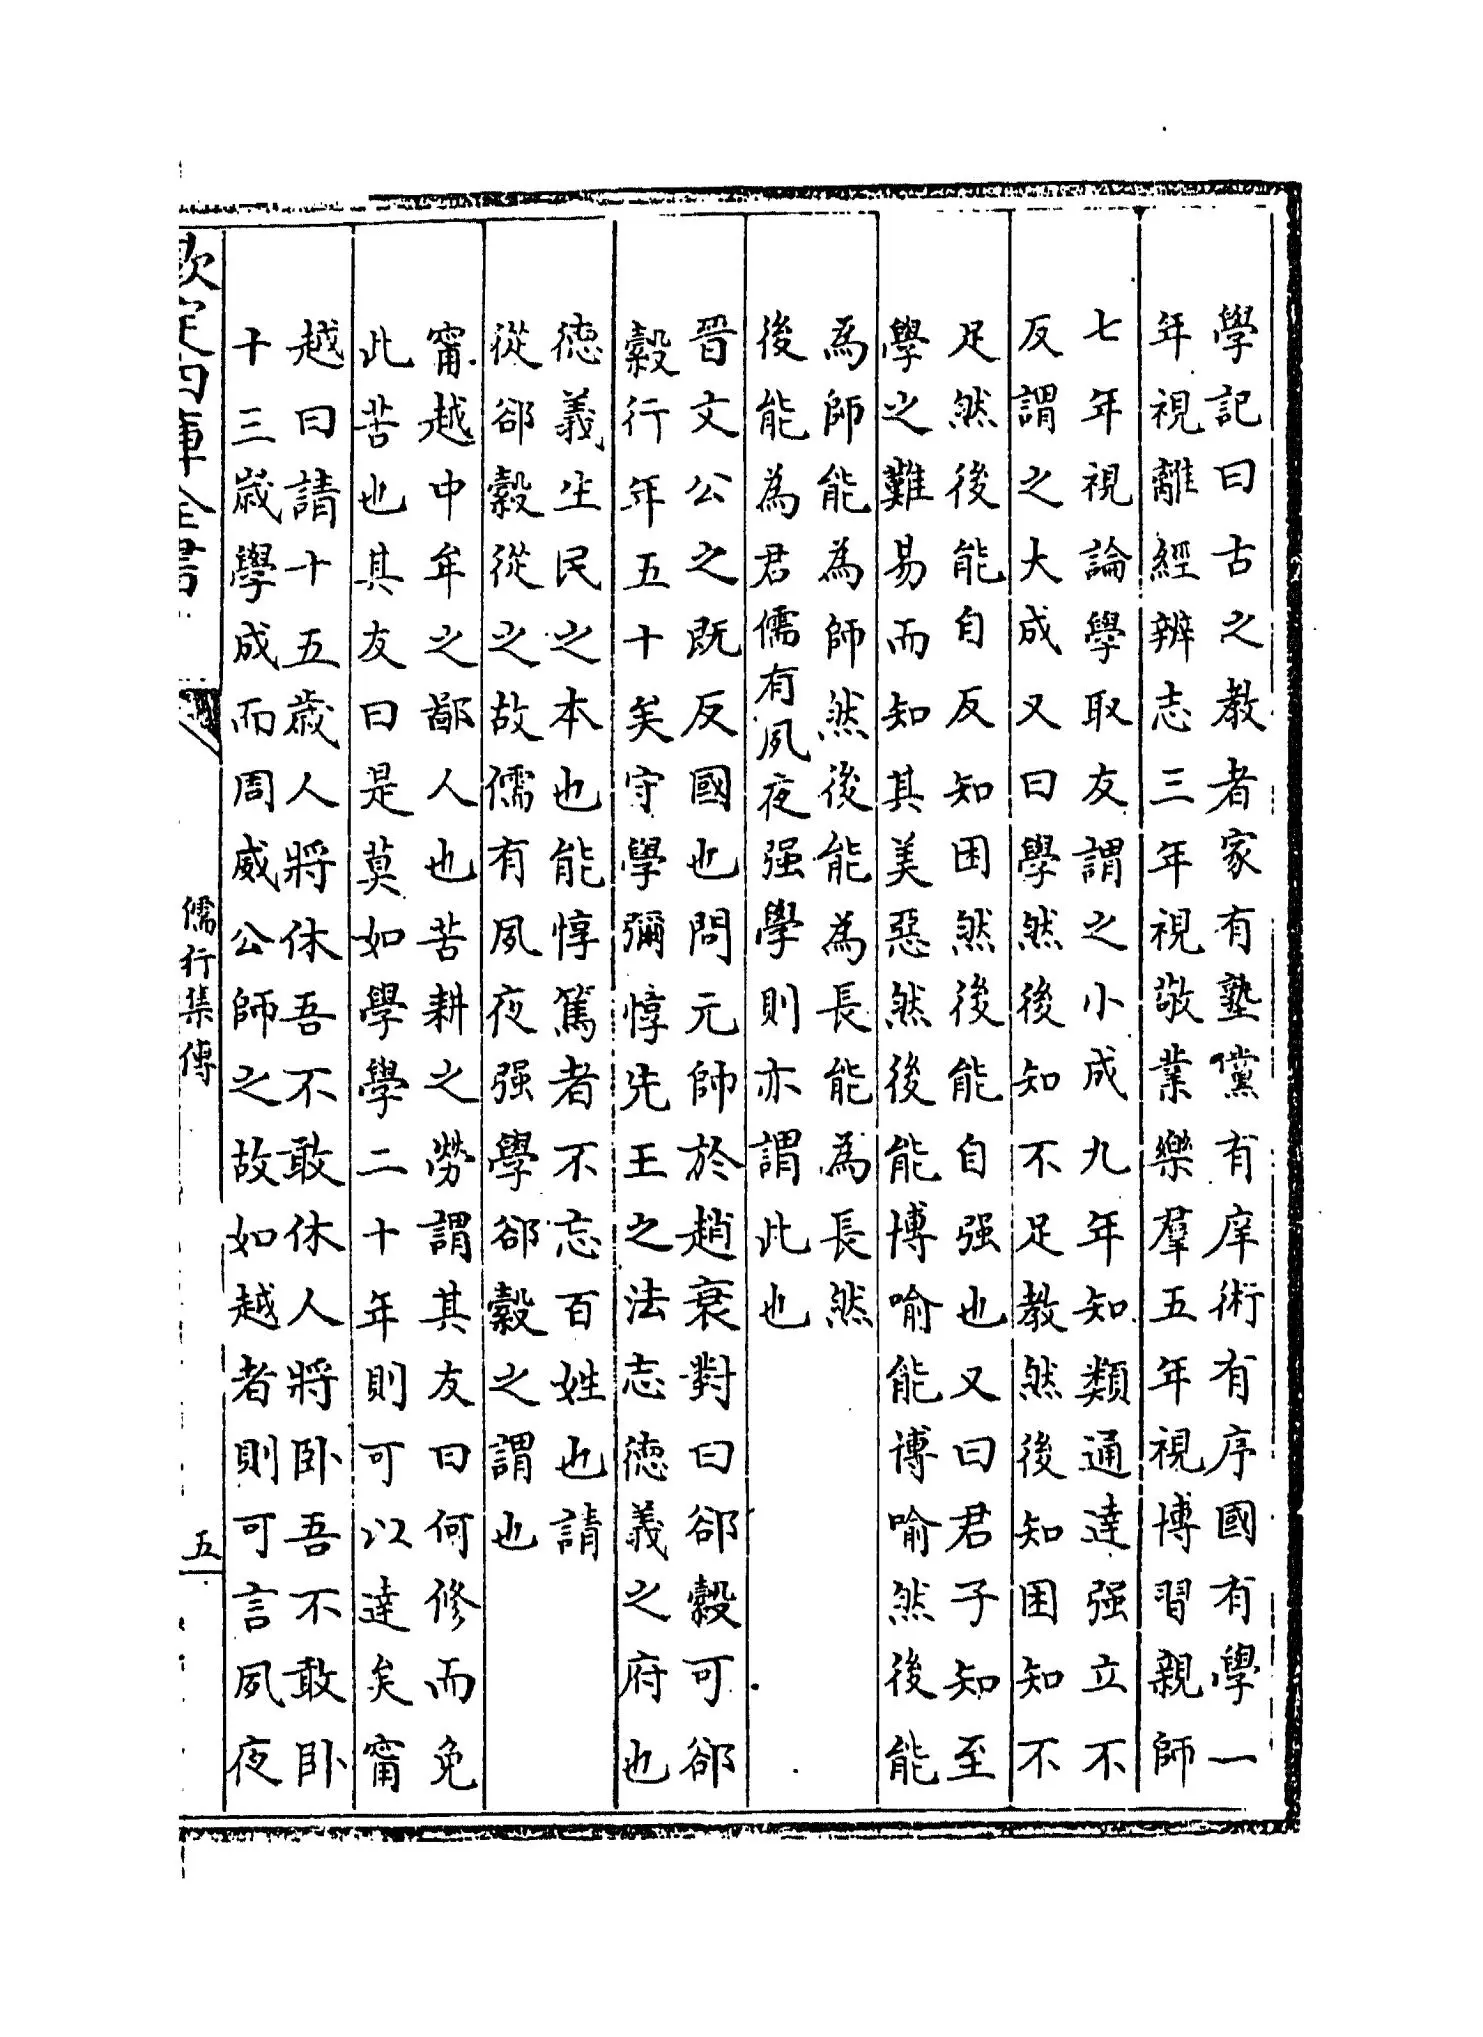 學記曰古之教者家有塾黨有庠術有序國有學一
年視離經辨志三年視敬業樂羣五年視博習親師
七年視論學取友謂之小成九年知類通達强立不
反謂之大成又曰學然後知不足教然後知困知不
足然後能自反知困然後能自强也又曰君子知至
學之難易而知其美惡然後能博喻能博喻然後能
為師能為師然後能為長能為長然
後能為君儒有夙夜强學則亦謂此也
晉文公之既反國也問元帥於趙衰對曰郤縠可郤
縠行年五十矣守學彌惇先王之法志德義之府也
德義生民之本也能惇篤者不忘百姓也請
從郤縠從之故儒有夙夜强學郤縠之謂也
甯越中牟之鄙人也苦耕之勞謂其友曰何修而免
此苦也其友曰是莫如學學二十年則可以達矣甯
越曰請十五歲人將休吾不敢休人將卧吾不敢卧
十三歲學成而周威公師之故如越者則可言夙夜
欽定四庫全書
儒行集傳
五